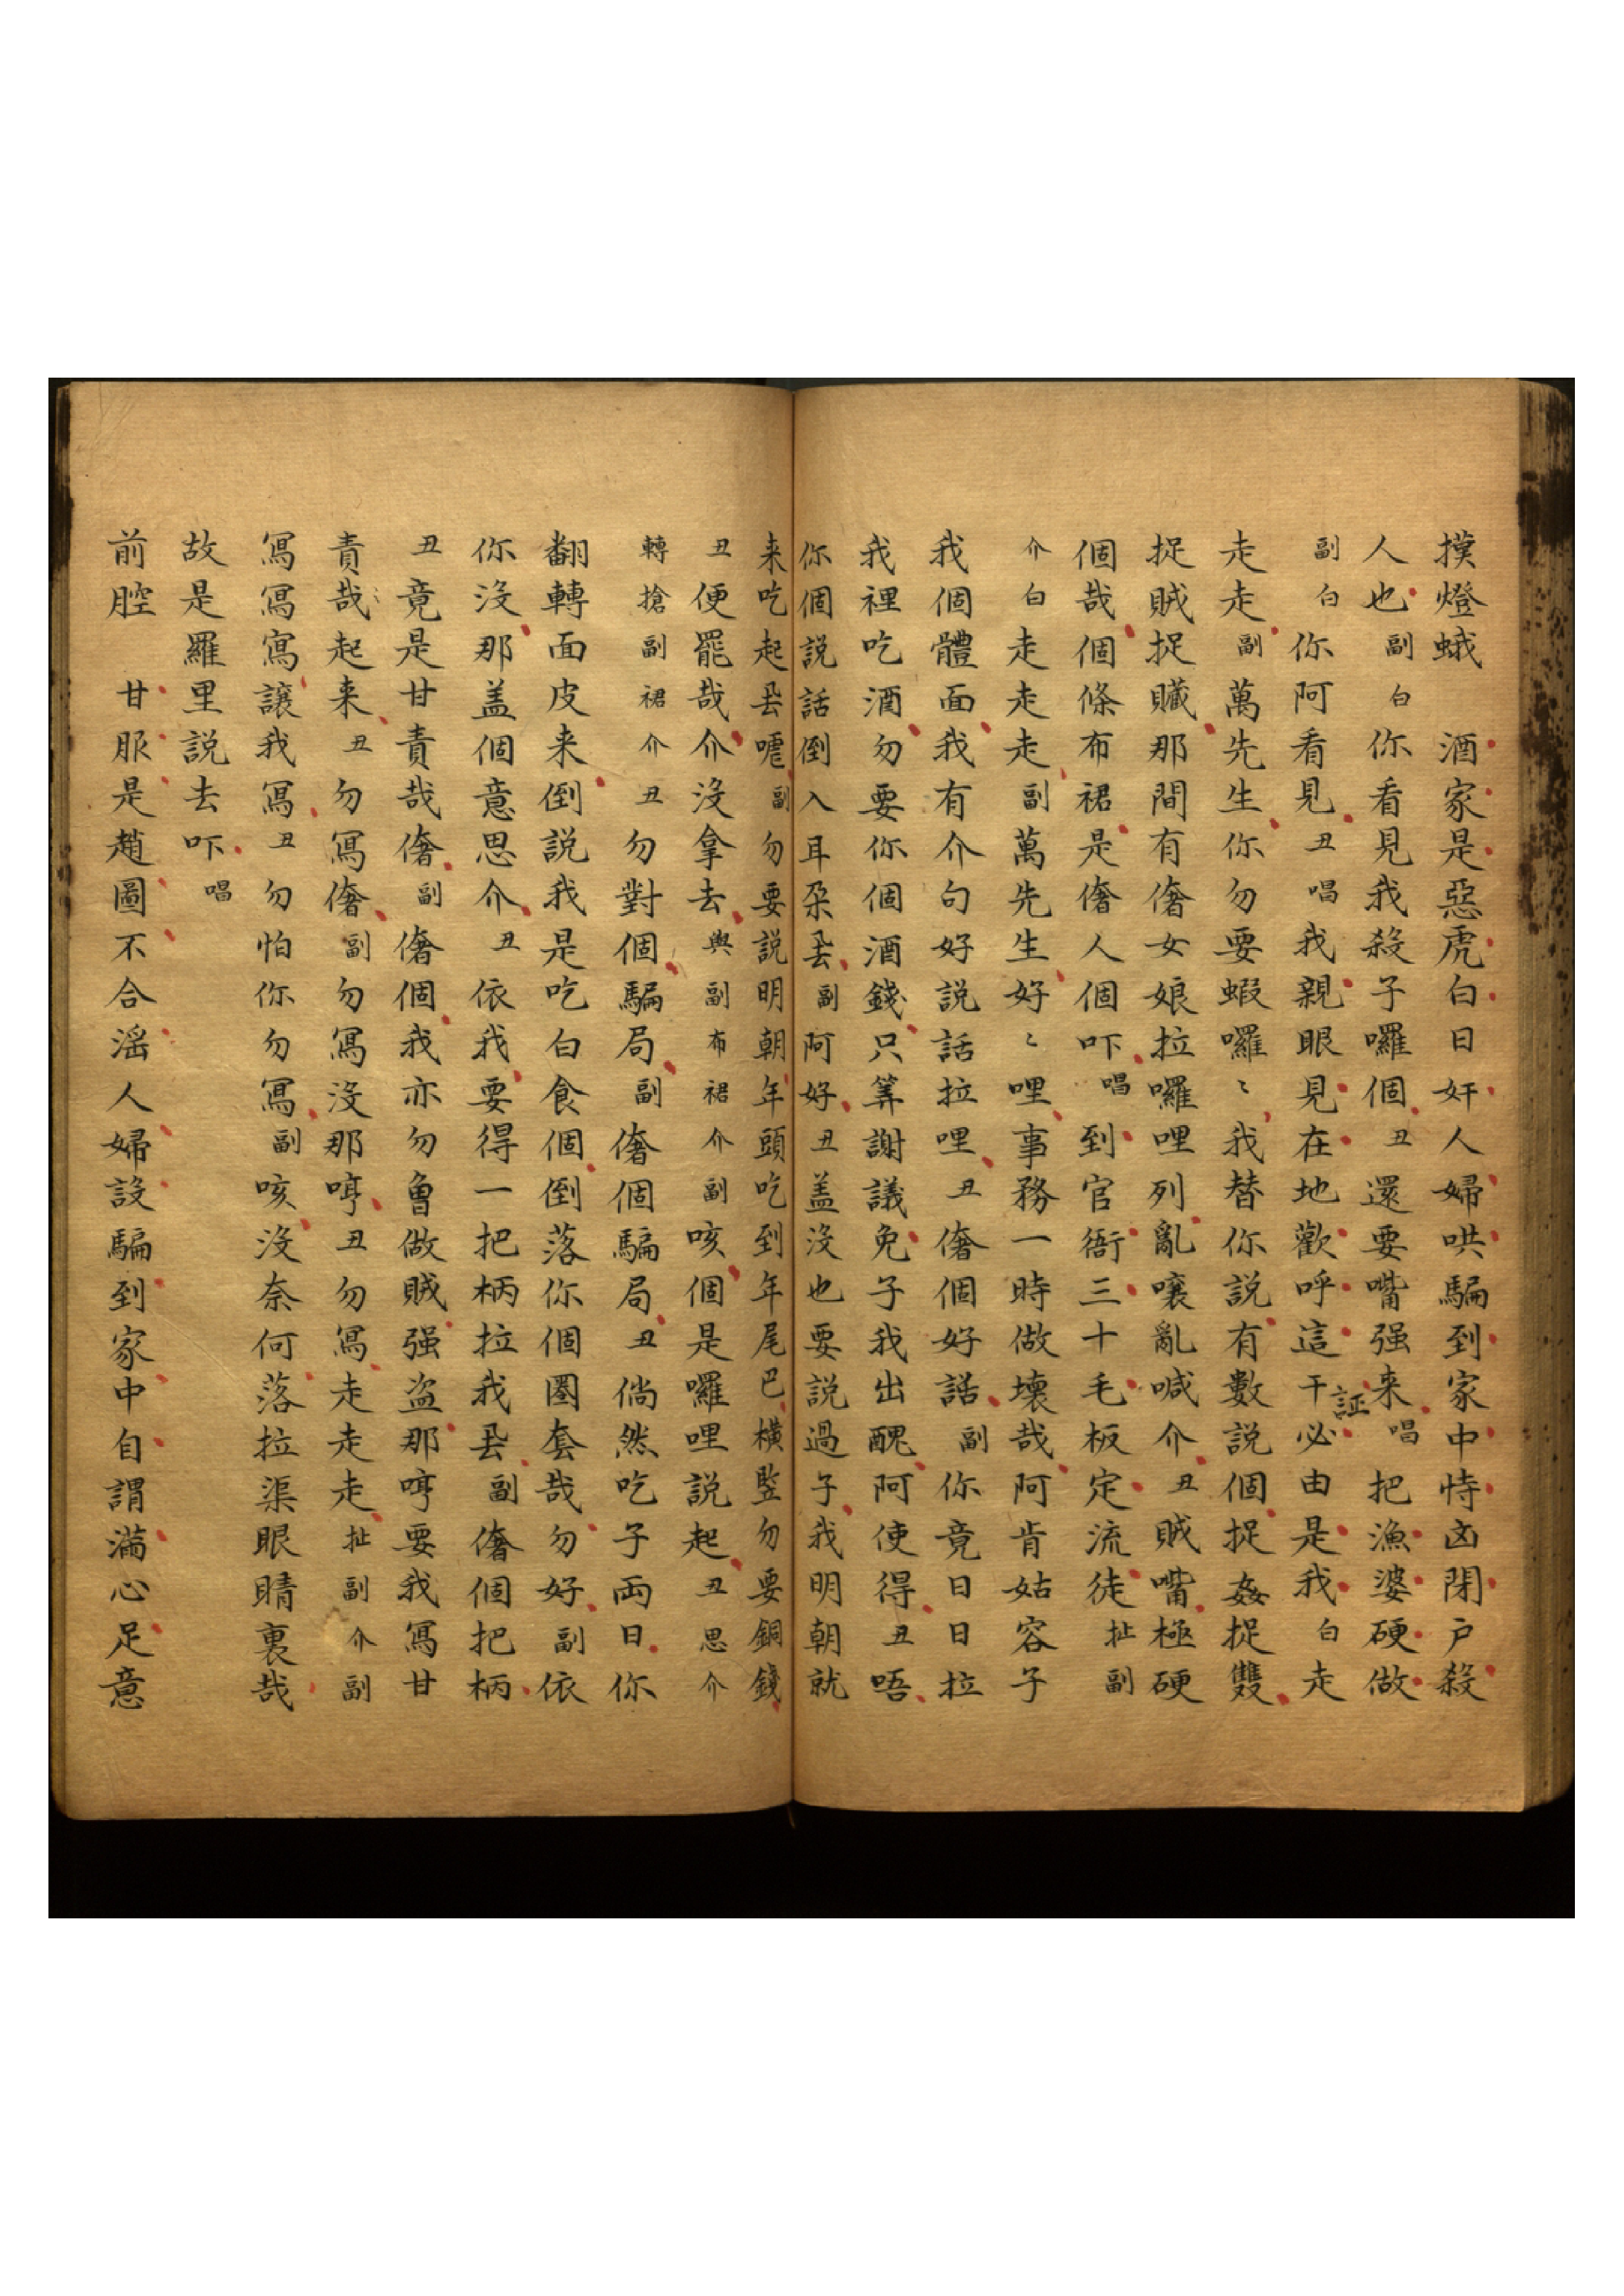 撲燈蛾　酒家是惡虎白日奸人婦哄騙到家中恃凶閉戶殺
人也副白你看見我殺子囉個丑還要嘴强来唱把漁婆硬做
副白你阿看見丑唱我親眼見在地歡呼這干証必由是我白走
走走副萬先生你勿要蝦囉〻我替你説有數説個捉姦捉雙
捉賊捉贓那間有奢女娘拉囉哩列亂嚷亂喊介丑賊嘴極硬
個哉個條布裙是奢人個吓唱到官衙三十毛板定流徒扯副
介白走走走副萬先生好〻哩事務一時做壞哉阿肯姑容子
我個體面我有介句好説話拉哩丑奢個好話副你竟日日拉
我裡吃酒勿要你個酒錢只筭謝議免子我出醜阿使得丑唔
你個説話倒入耳朶厾副阿好丑盖沒也要説過子我明朝就
来吃起厾嚜副勿要説明朝年頭吃到年尾巴横監勿要銅錢
丑便罷哉介沒拿去與副布裙介副咳個是囉哩説起丑思介
轉搶副裙介丑勿對個騙局副奢個騙局丑倘然吃子両日你
翻轉面皮来倒説我是吃白食個倒落你個圏套哉勿好副依
你沒那盖個意思介丑依我要得一把柄拉我厾副奢個把柄
丑竟是甘責哉奢副奢個我亦勿曾做賊强盗那哼要我寫甘
責哉起来丑勿寫奢副勿寫沒那哼丑勿寫走走走扯副介副
寫寫寫讓我寫丑勿怕你勿寫副咳沒奈何落拉渠眼睛裏哉
故是羅里説去吓唱
前腔　甘服是趙圖不合滛人婦設騙到家中自謂滿心足意